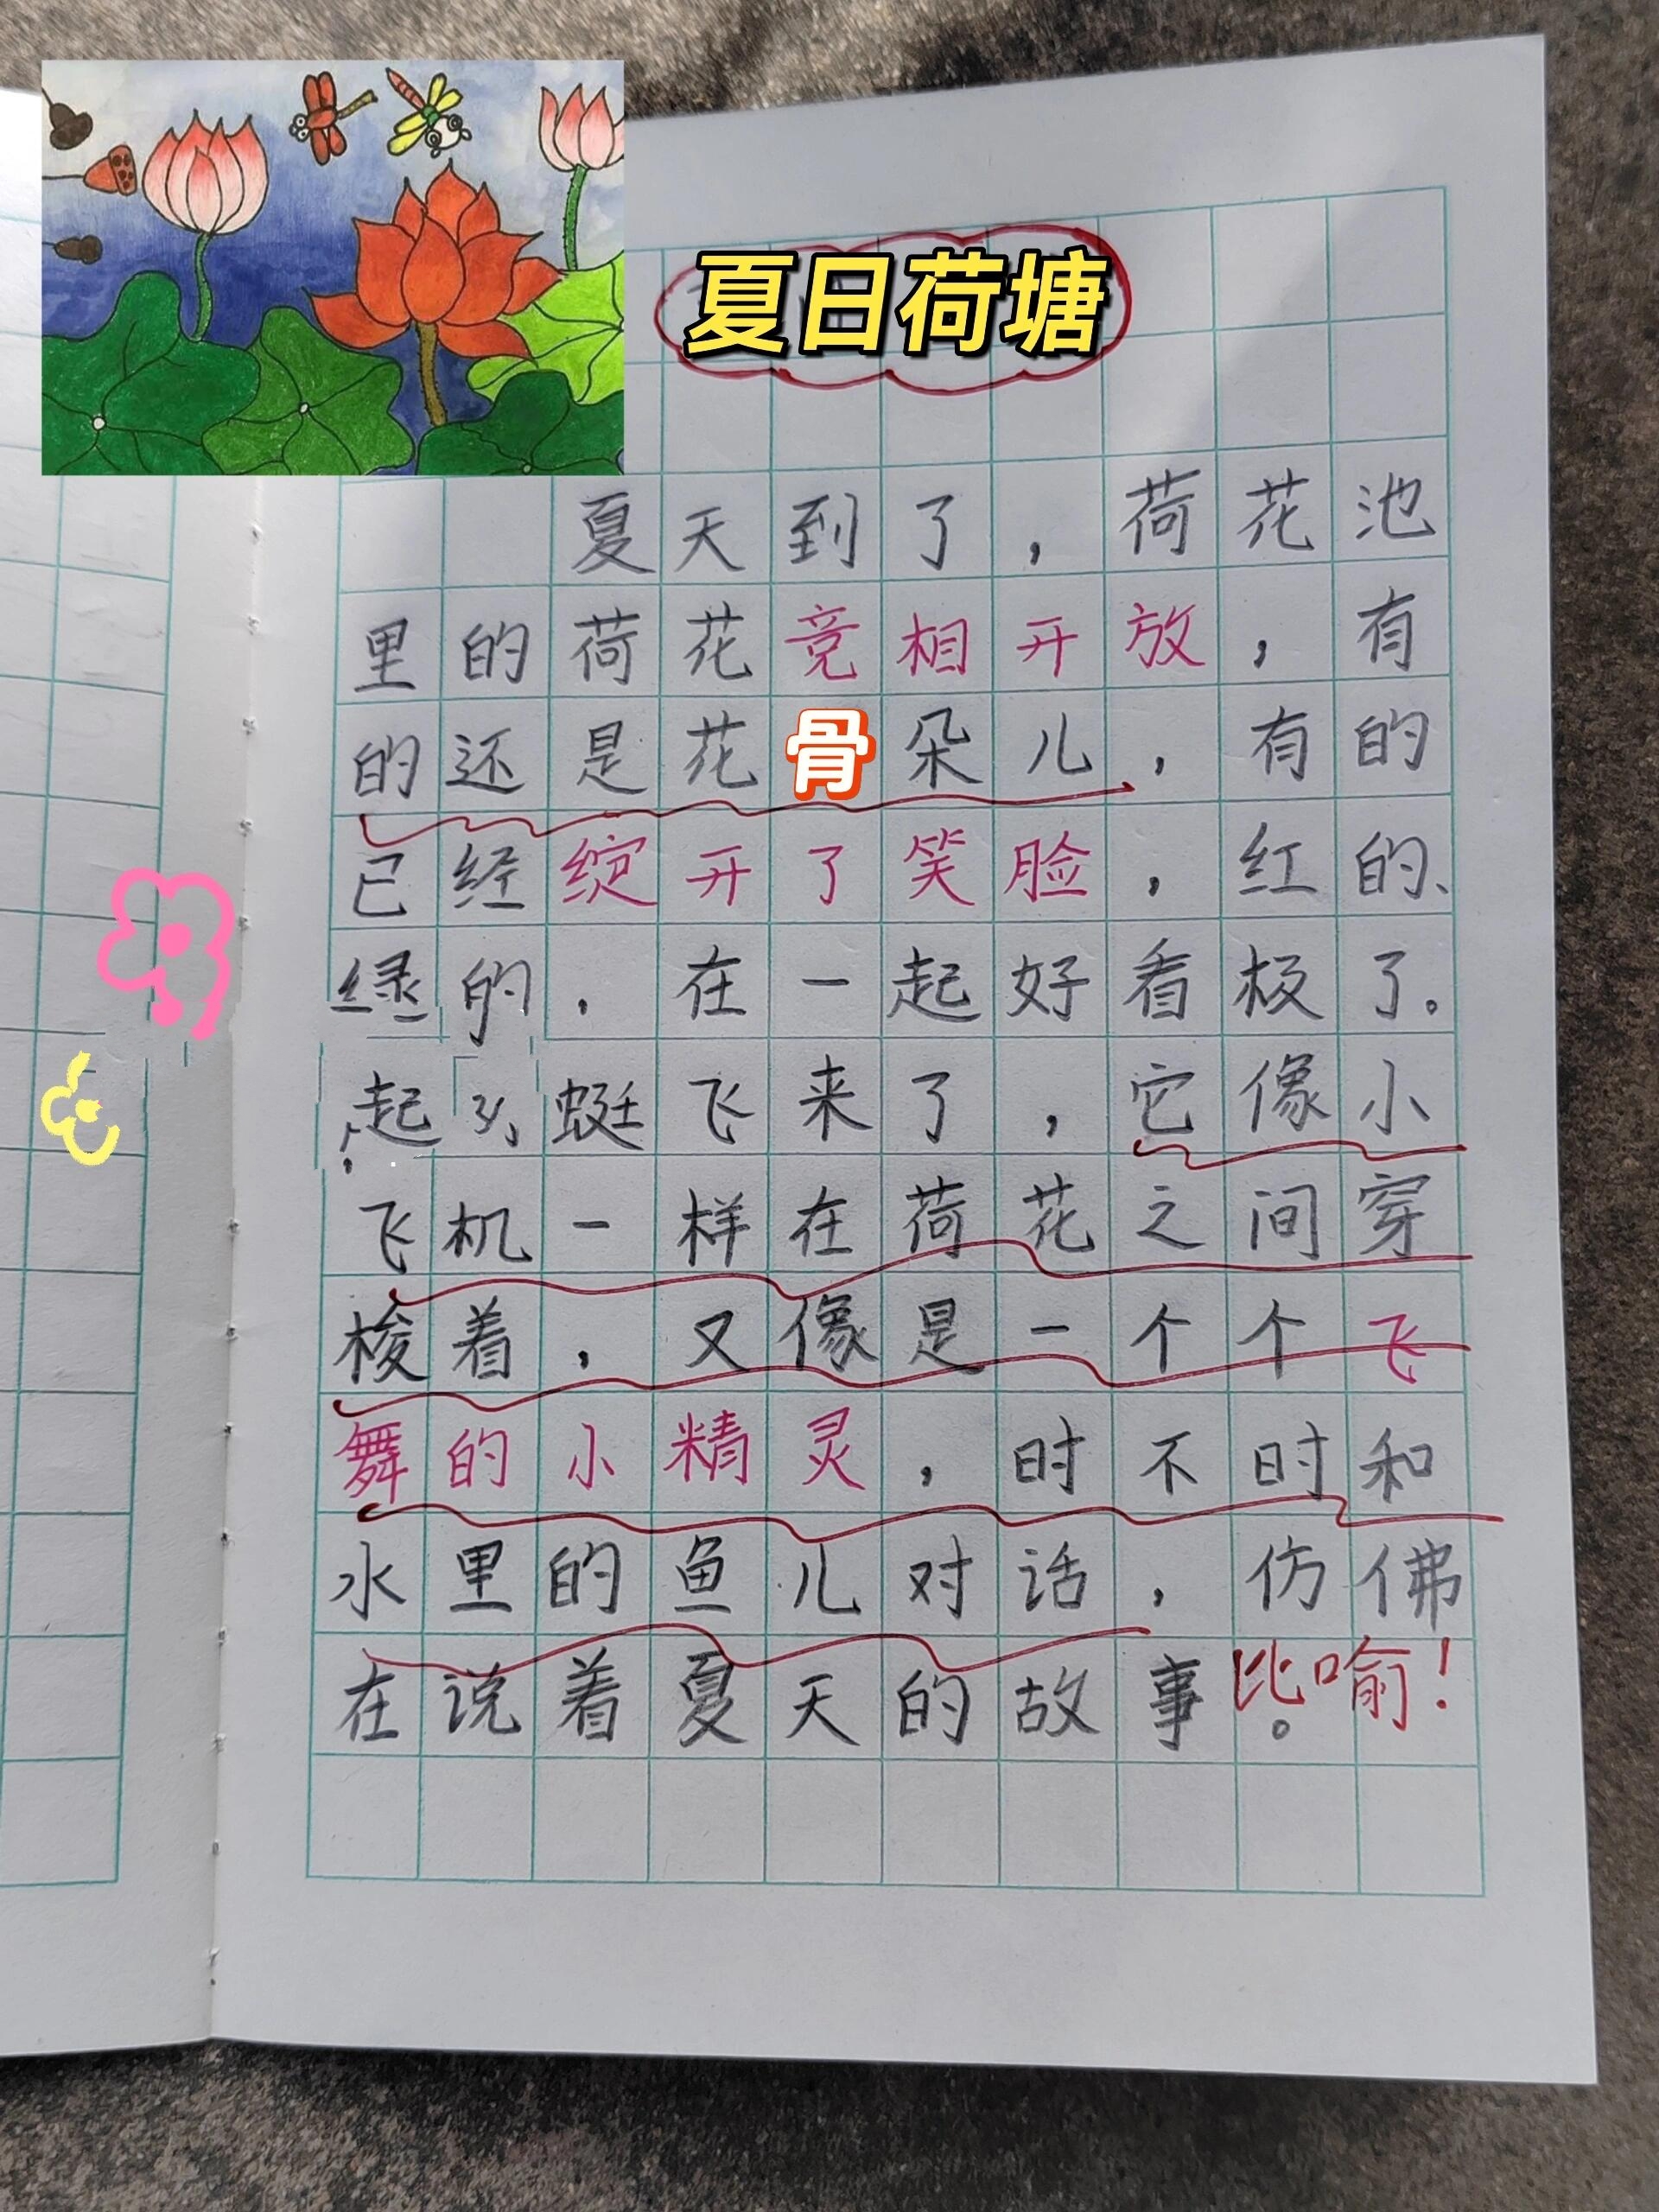 夏日荷塘
夏天到了，荷花池
里的荷花竞相开放，有
的还是花骨朵儿，有的
已经绽开了笑脸，红的、
绿的，在一起好看极了。
起 蜓飞来了，它像小
飞机一样在荷花之间穿
梭着，又像是一个个飞
舞的小精灵，时不时和
水里的鱼儿对话，仿佛
在说着夏天的故事。
比喻！